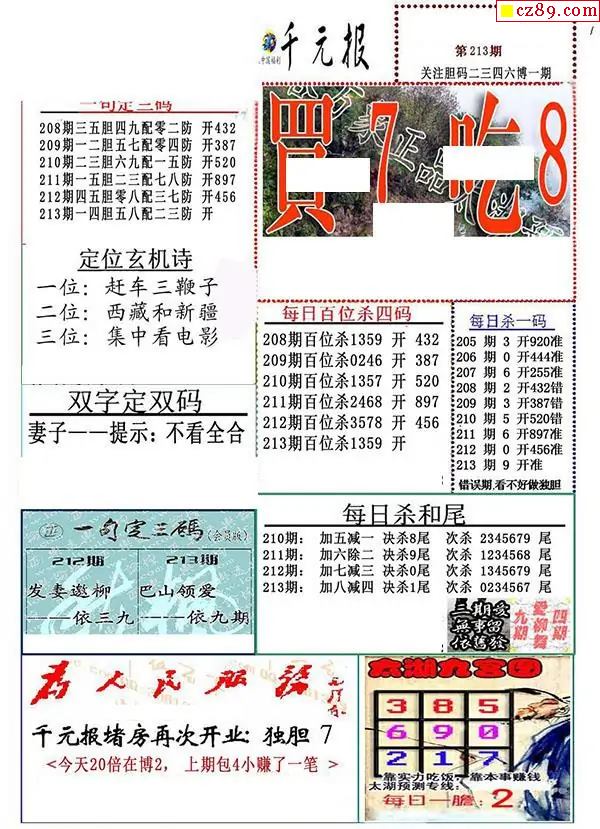 cz89.com
千元报
第213期
关注胆码二三四六博一期
買7吃8
一句定三码
208期三五胆四九配零二防 开432
209期一二胆五七配零四防 开387
210期二三胆六九配一五防 开520
211期一五胆二三配七八防 开897
212期四五胆零八配三七防 开456
213期一四胆五八配二三防 开
定位玄机诗
一位：赶车三鞭子
二位：西藏和新疆
三位：集中看电影
每日百位杀四码
208期百位杀1359 开 432
209期百位杀0246 开 387
210期百位杀1357 开 520
211期百位杀2468 开 897
212期百位杀3578 开 456
213期百位杀1359 开
每日杀一码
205 期 3 开920准
206 期 0 开444准
207 期 6 开255准
208 期 2 开432错
209 期 3 开387错
210 期 5 开520错
211 期 6 开897准
212 期 0 开456准
213 期 9 开准
错误期,看不好做独胆
双字定双码
妻子——提示：不看全合
每日杀和尾
210期： 加五减一 决杀8尾 次杀 2345679 尾
211期： 加六除二 决杀9尾 次杀 1234568 尾
212期： 加七减三 决杀0尾 次杀 1534679 尾
213期： 加八减四 决杀1尾 次杀 0234567 尾
一句定三碼(会员版)
212期 213期
发妻邀柳 巴山领爱
——依三九 ——依九期
三期爱
無事留
依舊發
九湖
愛柳舞
四湖
为人民服务
千元报堵房再次开业：独胆 7
<今天20倍在博2， 上期包4小赚了一笔 >
太湖九宫图
3 8 5
6 9 0
2 1 7
靠实力吃饭，靠本事赚钱
太湖预测专线：
每日一胆：2